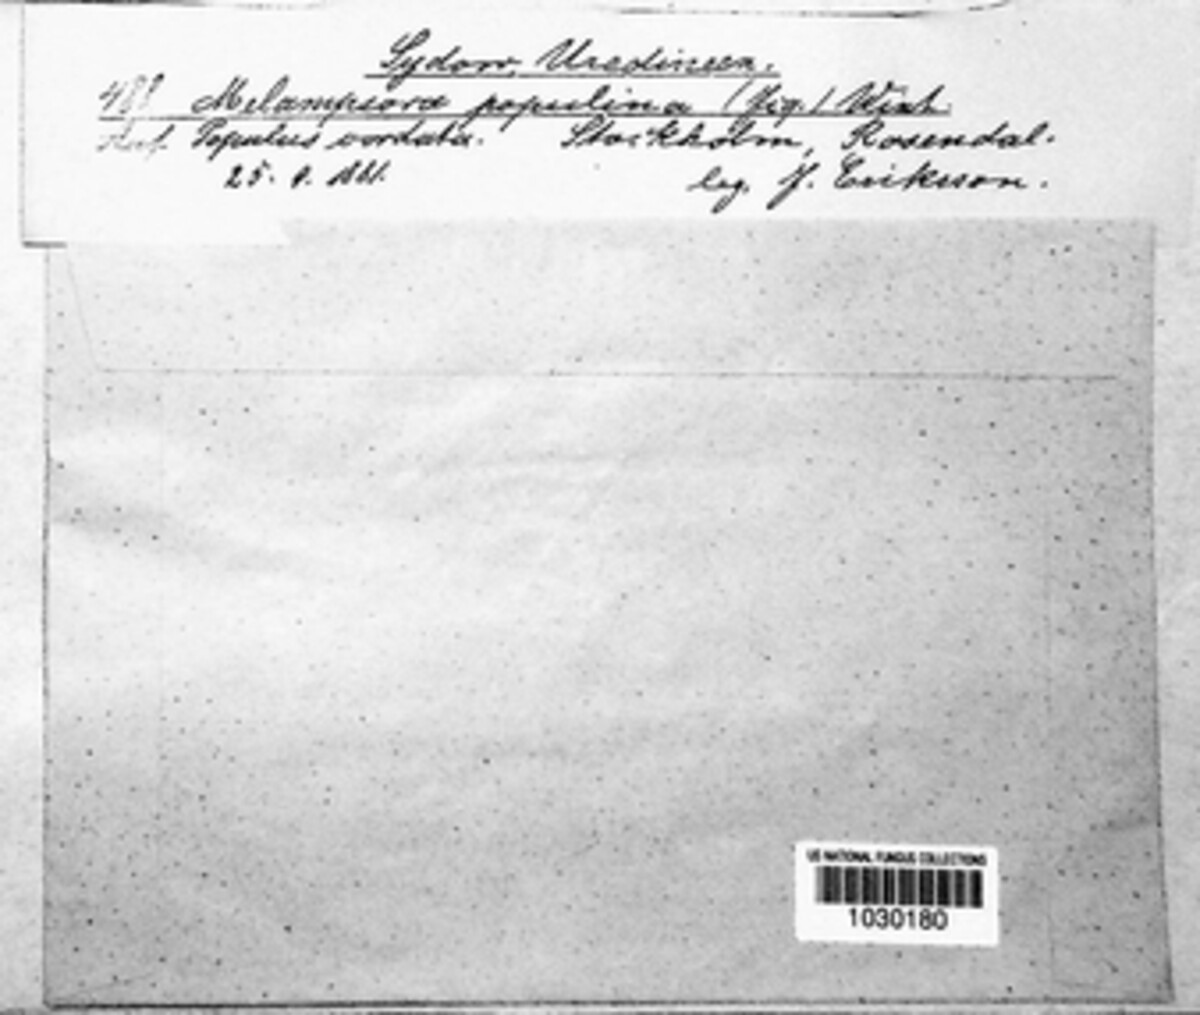 Sydow, Uredineen.
488 Melampsora populina (Jacq.) Wint.
Auf Populus cordata. Stockholm, Rosendal.
25. 9. 1881. leg. J. Eriksson.
US NATIONAL FUNGUS COLLECTIONS
1030180